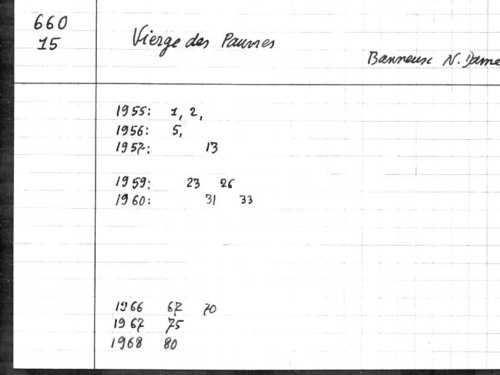 660
15
Vierge des Pauvres
Banneux N. Dame
1955: 1, 2,
1956: 5,
1957: 13
1959: 23 26
1960: 31 33
1966 67 70
1967 75
1968 80